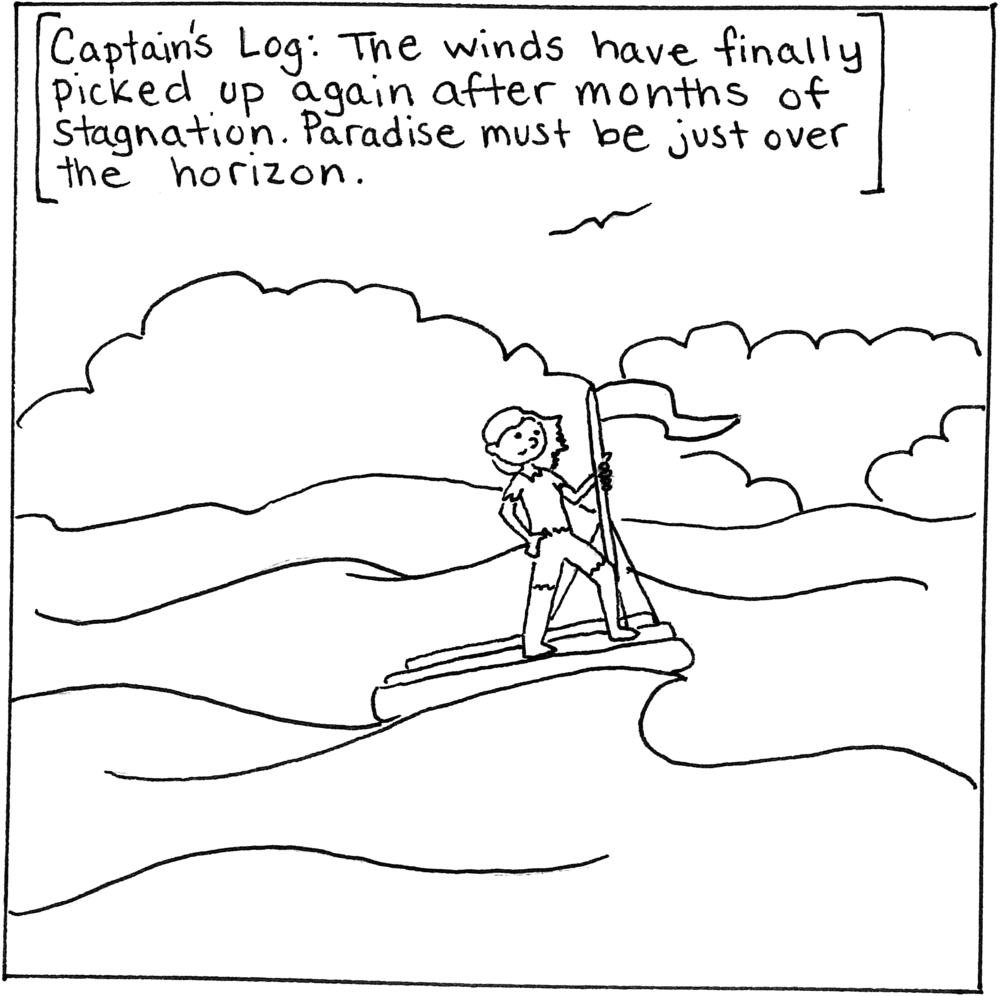 Captain's Log: The winds have finally
picked up again after months of
stagnation. Paradise must be just over
the horizon.